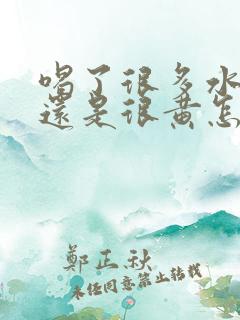 喝了很多水
還是很黃怎
鄭正秋
未经同意禁止转载